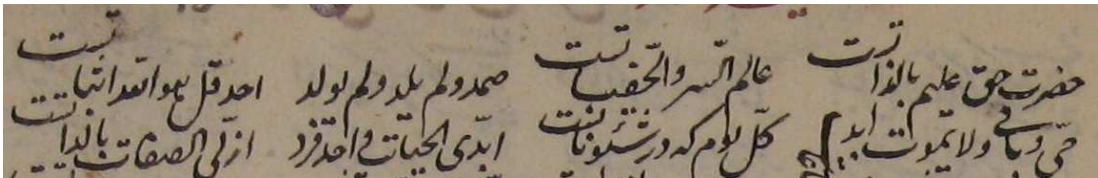 حضرت حق علیم بالذاتست عالم السر والخفیاتست صمد ولم یلد ولم یولد احد قل هو الله اثباتست
حی و باقی ولا یموت ابد کل یوم که در شئوناتست ابدی الحیات واحد فرد ازلی الصفات بالذاتست